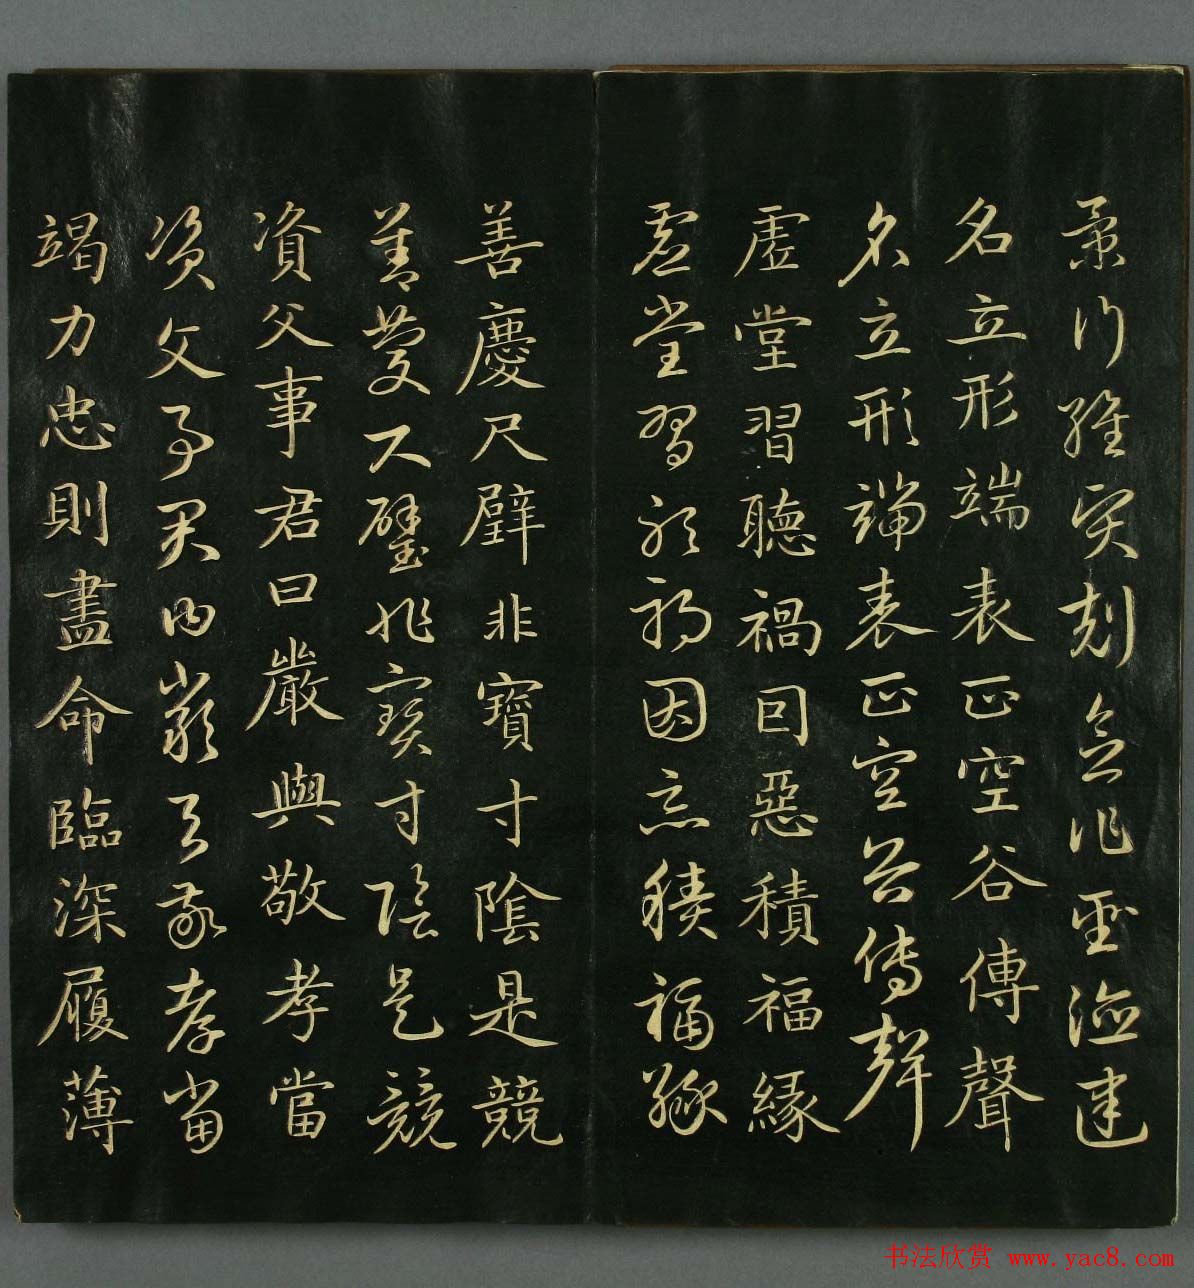 景行維賢剋念作聖德建
名立形端表正空谷傳聲
名立形端表正空谷傳聲
虛堂習聽禍因惡積福緣
虛堂習聽禍因惡積福緣
善慶尺璧非寶寸陰是競
善慶尺璧非寶寸陰是競
資父事君曰嚴與敬孝當
資父事君曰嚴與敬孝當
竭力忠則盡命臨深履薄
书法欣赏 www.yac8.com